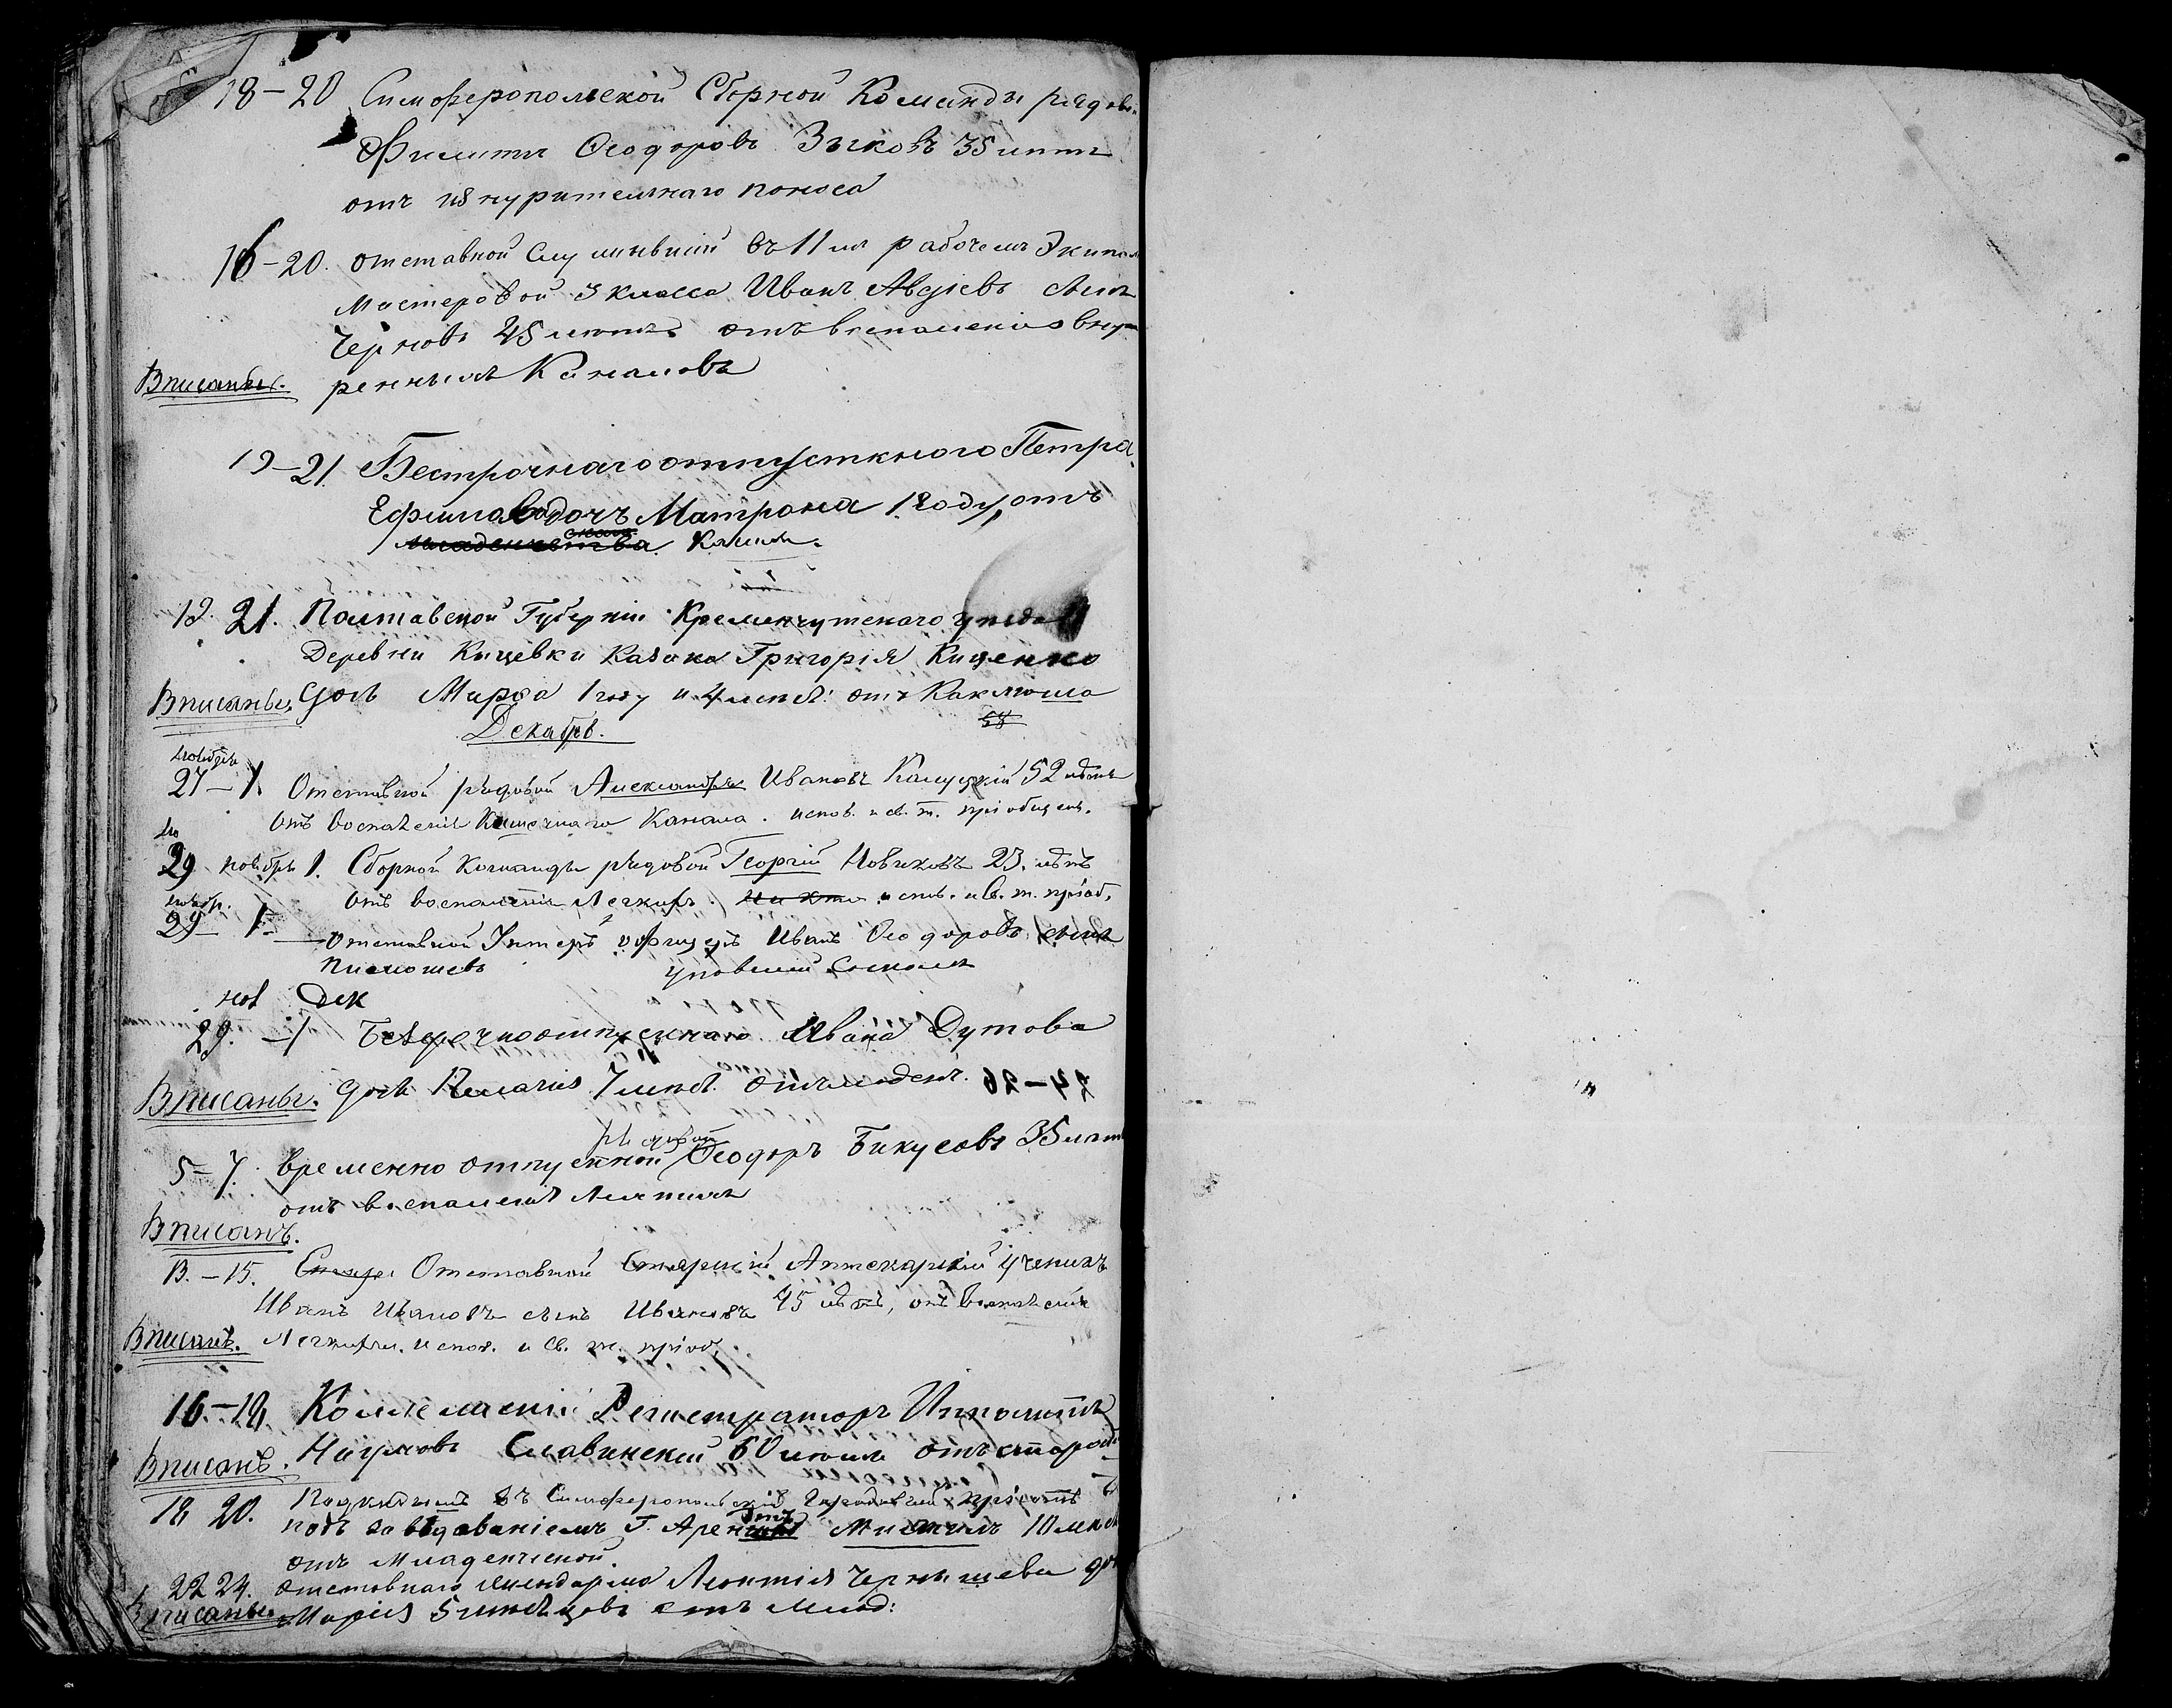 18–20 Симферопольской Сборной Команды рядовой
Филиппъ Ѳеодоровъ Зыковъ 35 летъ
отъ изнурительнаго поноса
16–20. отставной служившій въ 11мъ рабочемъ Экипаж
Мастеровой 3 класса Иванъ Авдіевъ сынъ
Черновъ 45 летъ отъ воспаленія внут
Вписаны. реннихъ Каналовъ
19–21. Безсрочнаго отпускного Петра
Ефимова дочъ Матрона 1 году, отъ
младенчества Кашля.
19. 21. Полтавской Губерніи Кременчугскаго уезда
Деревни Кицевки Казака Григорія Киценко
Вписаны. дочь Марѳа 1 году и 4 месе: отъ Каклюша
Декабрь.
ноябрь
27–1. Отставной рядовой Александръ Ивановъ 52 лѣтъ
отъ воспаленія Кишечнаго Канала. испов. и св. т. пріобщен.
но
29 ноябрь 1. Сборной Команды рядовой Георгій Новиковъ 23. лѣтъ
ноябр. отъ воспаленія Легкихъ. испов. и Св. т. пріоб.
29– 1– отставной Унтеръ офицеръ Иванъ Ѳеодоровъ сынъ
нов Дек
29. –1 Безсрочноотпускнаго Ивана Дутова
Вписаны. дочь Пелагія 7 месе. отъ младенч.
24–26
рядовой
5–7. временно отпускной Ѳеодоръ Бикусовъ 35 лет
отъ воспаленія Легкихъ
Вписанъ.
13.–15. Отставной Старшій Аптекарскій ученикъ
Иванъ Ивановъ сынъ Ивановъ 45 лѣтъ, отъ Воспаленія
Вписанъ. Легкихъ. испов. и Св. т. пріоб.
16.–18. Коллежскій Регистраторъ Ипполитъ
Вписанъ. Наумовъ Славинский 60 летъ отъ старости
18 20. Подкидышъ въ Симферопольскій Городовый пріютъ
подъ завѣдаваніемъ Г. Арен 10 мес
отъ Младенческой.
22 24. отставнаго жандарма Леонтія Чернышева доч
Вписаны. Марія 5 месецовъ отъ Млад: